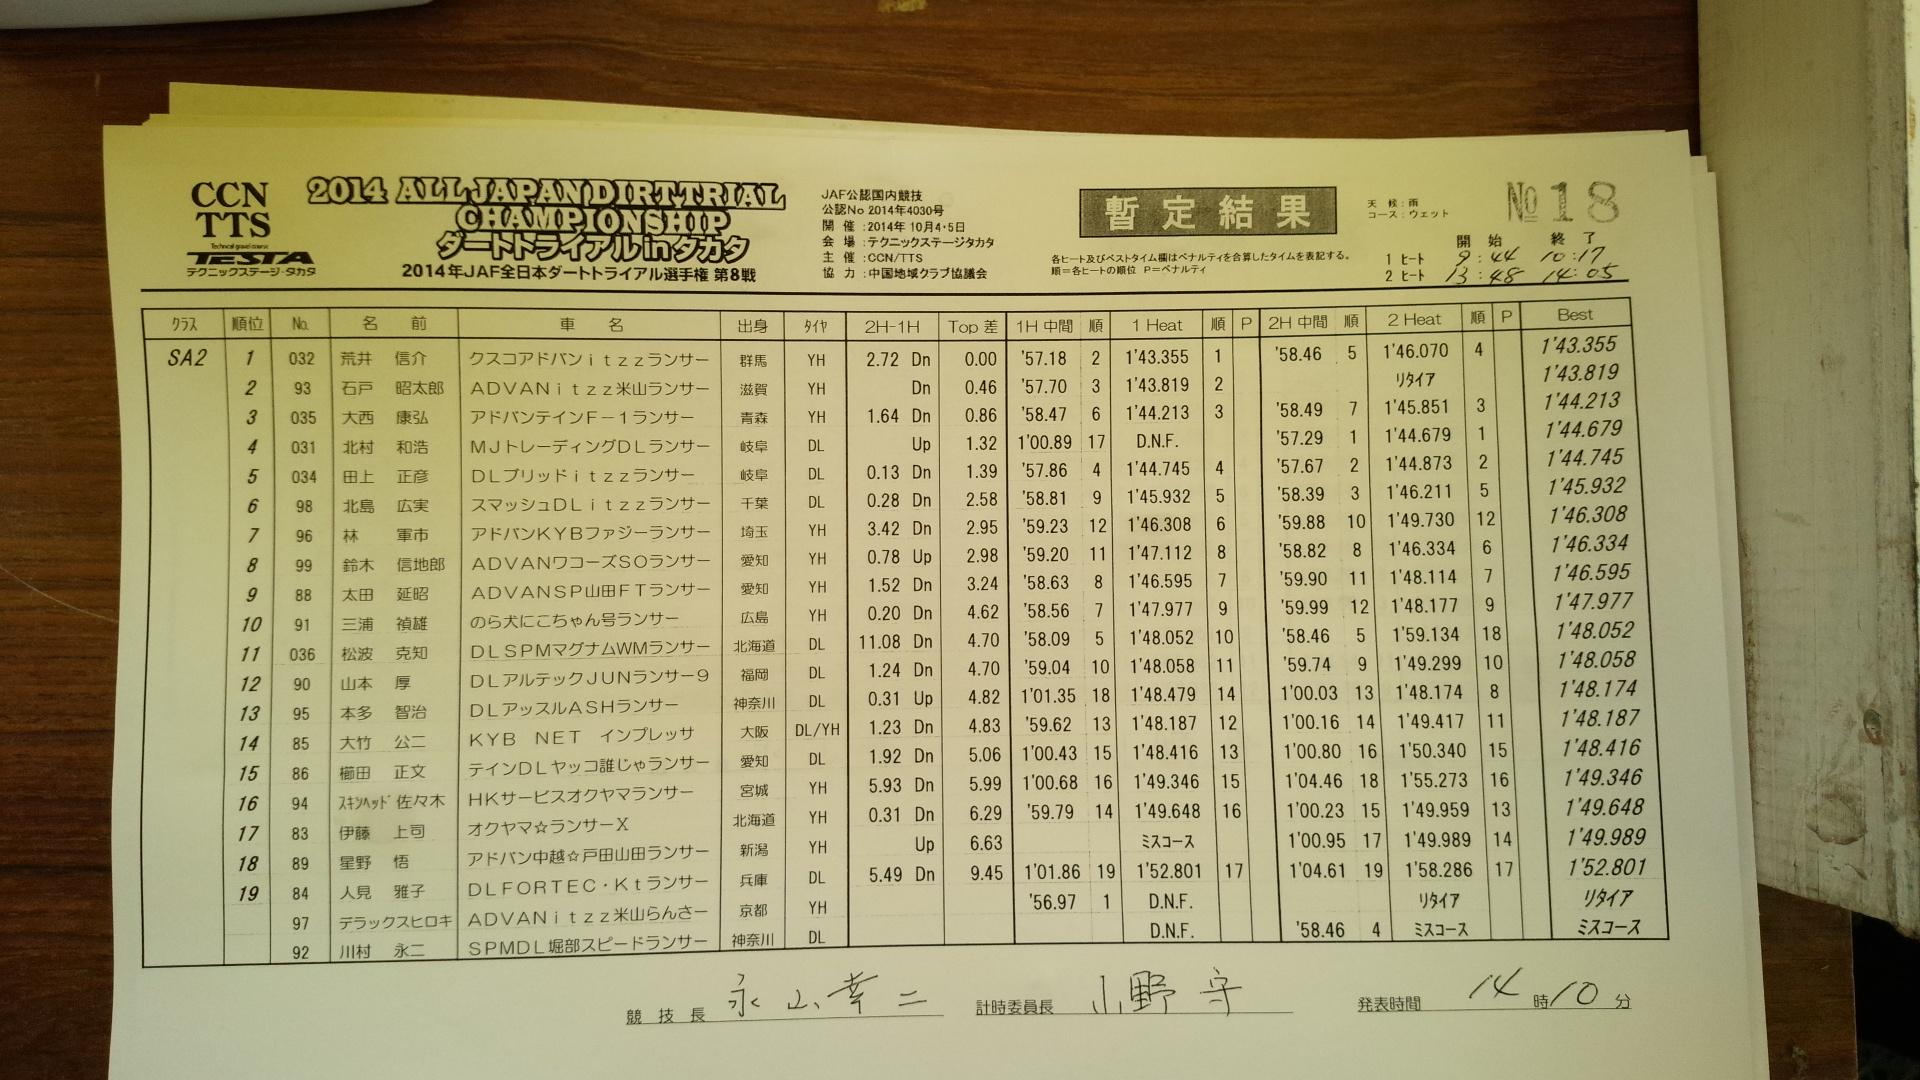 CCN
TTS
Technical gravel course
TESTA
テクニックステージ・タカタ
2014 ALL JAPAN DIRT TRIAL
CHAMPIONSHIP
ダートトライアル in タカタ
2014年JAF全日本ダートトライアル選手権 第8戦
JAF公認国内競技
公認No 2014年4030号
開 催:2014年 10月4・5日
会 場:テクニックステージタカタ
主 催:CCN/TTS
協 力:中国地域クラブ協議会
暫定結果
各ヒート及びベストタイム欄はペナルティを合算したタイムを表記する。
順=各ヒートの順位 P=ペナルティ
天 候:雨
コース:ウェット
No 18
開 始 終 了
1 ヒート 9:44 10:17
2 ヒート 13:48 14:05
クラス 順位 No. 名 前 車 名 出身 タイヤ 2H-1H Top 差 1H 中間 順 1 Heat 順 P 2H 中間 順 2 Heat 順 P Best
SA2 1 032 荒井 信介 クスコアドバンitzzランサー 群馬 YH 2.72 Dn 0.00 '57.18 2 1'43.355 1 '58.46 5 1'46.070 4 1'43.355
2 93 石戸 昭太郎 ADVANitzz米山ランサー 滋賀 YH Dn 0.46 '57.70 3 1'43.819 2 リタイア 1'43.819
3 035 大西 康弘 アドバンテインF-1ランサー 青森 YH 1.64 Dn 0.86 '58.47 6 1'44.213 3 '58.49 7 1'45.851 3 1'44.213
4 031 北村 和浩 MJトレーディングDLランサー 岐阜 DL Up 1.32 1'00.89 17 D.N.F. '57.29 1 1'44.679 1 1'44.679
5 034 田上 正彦 DLブリッドitzzランサー 岐阜 DL 0.13 Dn 1.39 '57.86 4 1'44.745 4 '57.67 2 1'44.873 2 1'44.745
6 98 北島 広実 スマッシュDLitzzランサー 千葉 DL 0.28 Dn 2.58 '58.81 9 1'45.932 5 '58.39 3 1'46.211 5 1'45.932
7 96 林 軍市 アドバンKYBファジーランサー 埼玉 YH 3.42 Dn 2.95 '59.23 12 1'46.308 6 '59.88 10 1'49.730 12 1'46.308
8 99 鈴木 信地郎 ADVANワコーズSOランサー 愛知 YH 0.78 Up 2.98 '59.20 11 1'47.112 8 '58.82 8 1'46.334 6 1'46.334
9 88 太田 延昭 ADVANSP山田FTランサー 愛知 YH 1.52 Dn 3.24 '58.63 8 1'46.595 7 '59.90 11 1'48.114 7 1'46.595
10 91 三浦 禎雄 のら犬にこちゃん号ランサー 広島 YH 0.20 Dn 4.62 '58.56 7 1'47.977 9 '59.99 12 1'48.177 9 1'47.977
11 036 松波 克知 DLSPMマグナムWMランサー 北海道 DL 11.08 Dn 4.70 '58.09 5 1'48.052 10 '58.46 5 1'59.134 18 1'48.052
12 90 山本 厚 DLアルテックJUNランサー9 福岡 DL 1.24 Dn 4.70 '59.04 10 1'48.058 11 '59.74 9 1'49.299 10 1'48.058
13 95 本多 智治 DLアッスルASHランサー 神奈川 DL 0.31 Up 4.82 1'01.35 18 1'48.479 14 1'00.03 13 1'48.174 8 1'48.174
14 85 大竹 公二 KYB NET インプレッサ 大阪 DL/YH 1.23 Dn 4.83 '59.62 13 1'48.187 12 1'00.16 14 1'49.417 11 1'48.187
15 86 櫛田 正文 テインDLヤッコ誰じゃランサー 愛知 DL 1.92 Dn 5.06 1'00.43 15 1'48.416 13 1'00.80 16 1'50.340 15 1'48.416
16 94 スキンヘッド佐々木 HKサービスオクヤマランサー 宮城 YH 5.93 Dn 5.99 1'00.68 16 1'49.346 15 1'04.46 18 1'55.273 16 1'49.346
17 83 伊藤 上司 オクヤマ☆ランサーX 北海道 YH 0.31 Dn 6.29 '59.79 14 1'49.648 16 1'00.23 15 1'49.959 13 1'49.648
18 89 星野 悟 アドバン中越☆戸田山田ランサー 新潟 YH Up 6.63 ミスコース 1'00.95 17 1'49.989 14 1'49.989
19 84 人見 雅子 DLFORTEC・Ktランサー 兵庫 DL 5.49 Dn 9.45 1'01.86 19 1'52.801 17 1'04.61 19 1'58.286 17 1'52.801
97 デラックスヒロキ ADVANitzz米山らんさー 京都 YH '56.97 1 D.N.F. リタイア リタイア
92 川村 永二 SPMDL堀部スピードランサー 神奈川 DL D.N.F. '58.46 4 ミスコース ミスコース
競 技 長 永山幸二 計時委員長 小野 守 発表時間 14 時 10 分